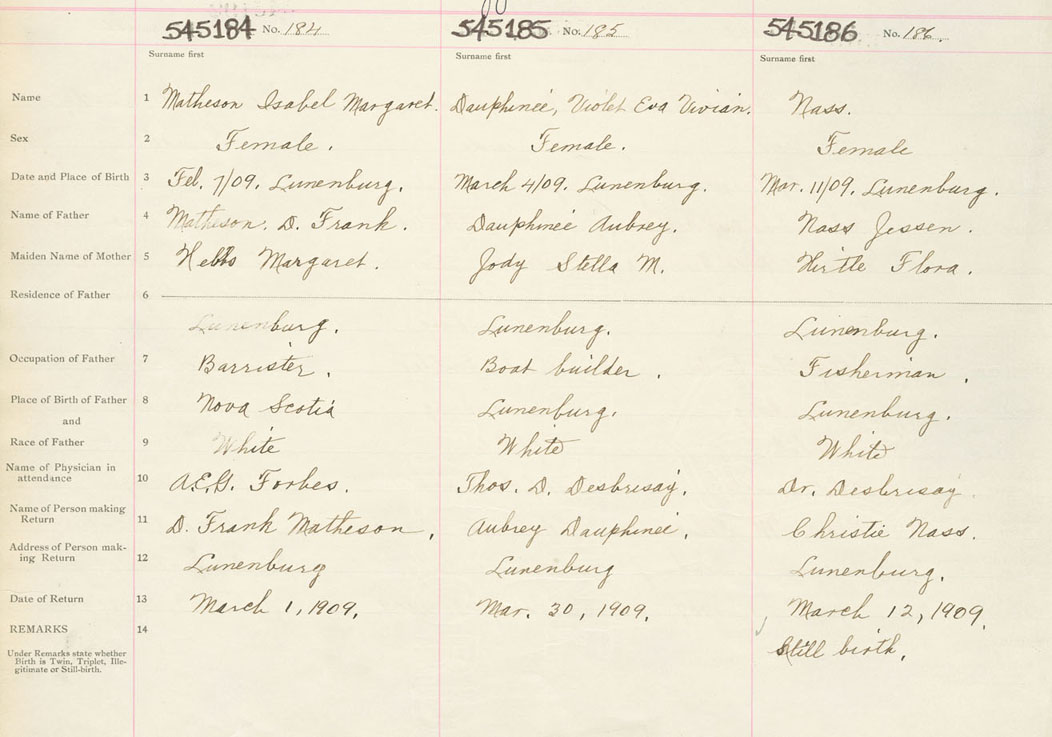 545184 No. 184 545185 No. 185 545186 No. 186.
Surname first Surname first Surname first
Name 1 Matheson Isabel Margaret. Dauphineé, Violet Eva Vivian. Nass.
Sex 2 Female. Female. Female
Date and Place of Birth 3 Feb. 7/09. Lunenburg. March 4/09. Lunenburg. Mar. 11/09. Lunenburg.
Name of Father 4 Matheson. D. Frank. Dauphineé Aubrey. Nass Jessen.
Maiden Name of Mother 5 Hebbs Margaret. Jody Stella M. Hirtle Flora.
Residence of Father 6
Lunenburg. Lunenburg. Lunenburg.
Occupation of Father 7 Barrister. Boat builder. Fisherman.
Place of Birth of Father 8 Nova Scotia Lunenburg. Lunenburg.
and
Race of Father 9 White White White
Name of Physician in
attendance 10 A.E.G. Forbes. Thos. D. Desbrisay. Dr. Desbrisay.
Name of Person making
Return 11 D. Frank Matheson. Aubrey Dauphineé. Christie Nass.
Address of Person mak-
ing Return 12 Lunenburg Lunenburg Lunenburg.
Date of Return 13 March 1, 1909. Mar. 30, 1909. March 12, 1909.
REMARKS 14
Under Remarks state whether
Birth is Twin, Triplet, Ille-
gitimate or Still-birth.
Still birth.